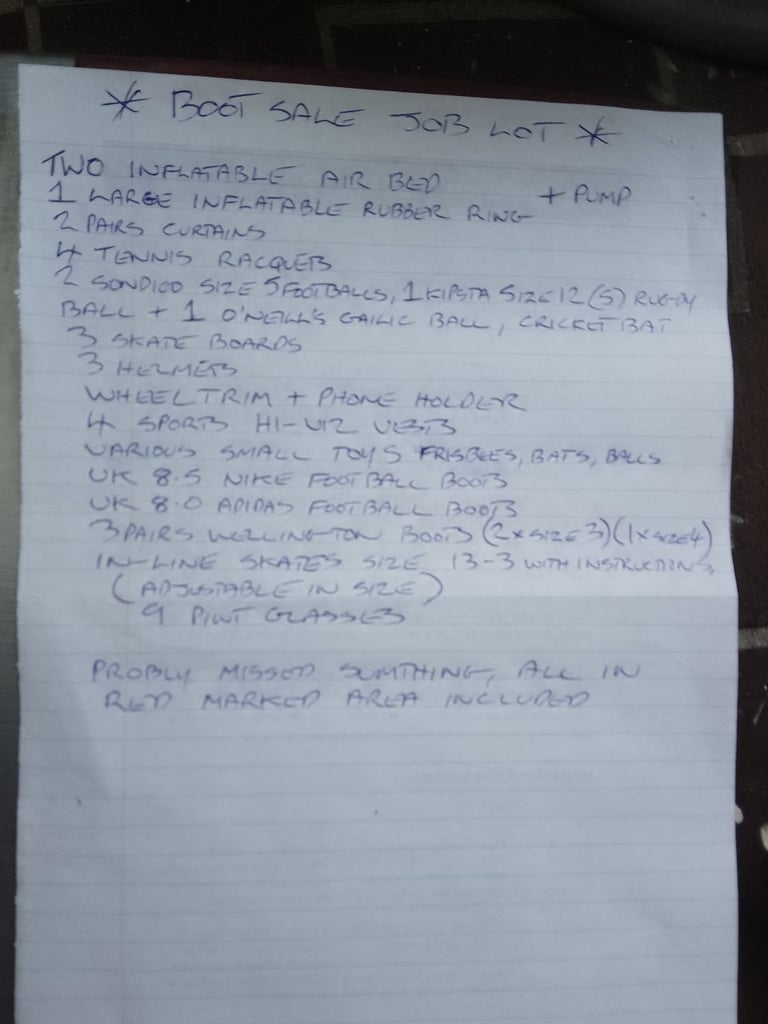 * BOOT SALE JOB LOT *
TWO INFLATABLE AIR BED + PUMP
1 LARGE INFLATABLE RUBBER RING
2 PAIRS CURTAINS
4 TENNIS RACQUETS
2 SONDICO SIZE 5 FOOTBALLS, 1 KIPSTA SIZE 12 (5) RUGBY
BALL + 1 O'NEILL'S GAILIC BALL, CRICKET BAT
3 SKATE BOARDS
3 HELMETS
WHEEL TRIM + PHONE HOLDER
4 SPORTS HI-VIZ VESTS
VARIOUS SMALL TOYS FRISBEES, BATS, BALLS
UK 8.5 NIKE FOOTBALL BOOTS
UK 8.0 ADIDAS FOOTBALL BOOTS
3 PAIRS WELLINGTON BOOTS (2 x SIZE 3) (1 x SIZE 4)
IN-LINE SKATES SIZE 13-3 WITH INSTRUCTIONS,
(ADJUSTABLE IN SIZE)
9 PINT GLASSES
PROBLY MISSED SUMTHING, ALL IN
RED MARKED AREA INCLUDED